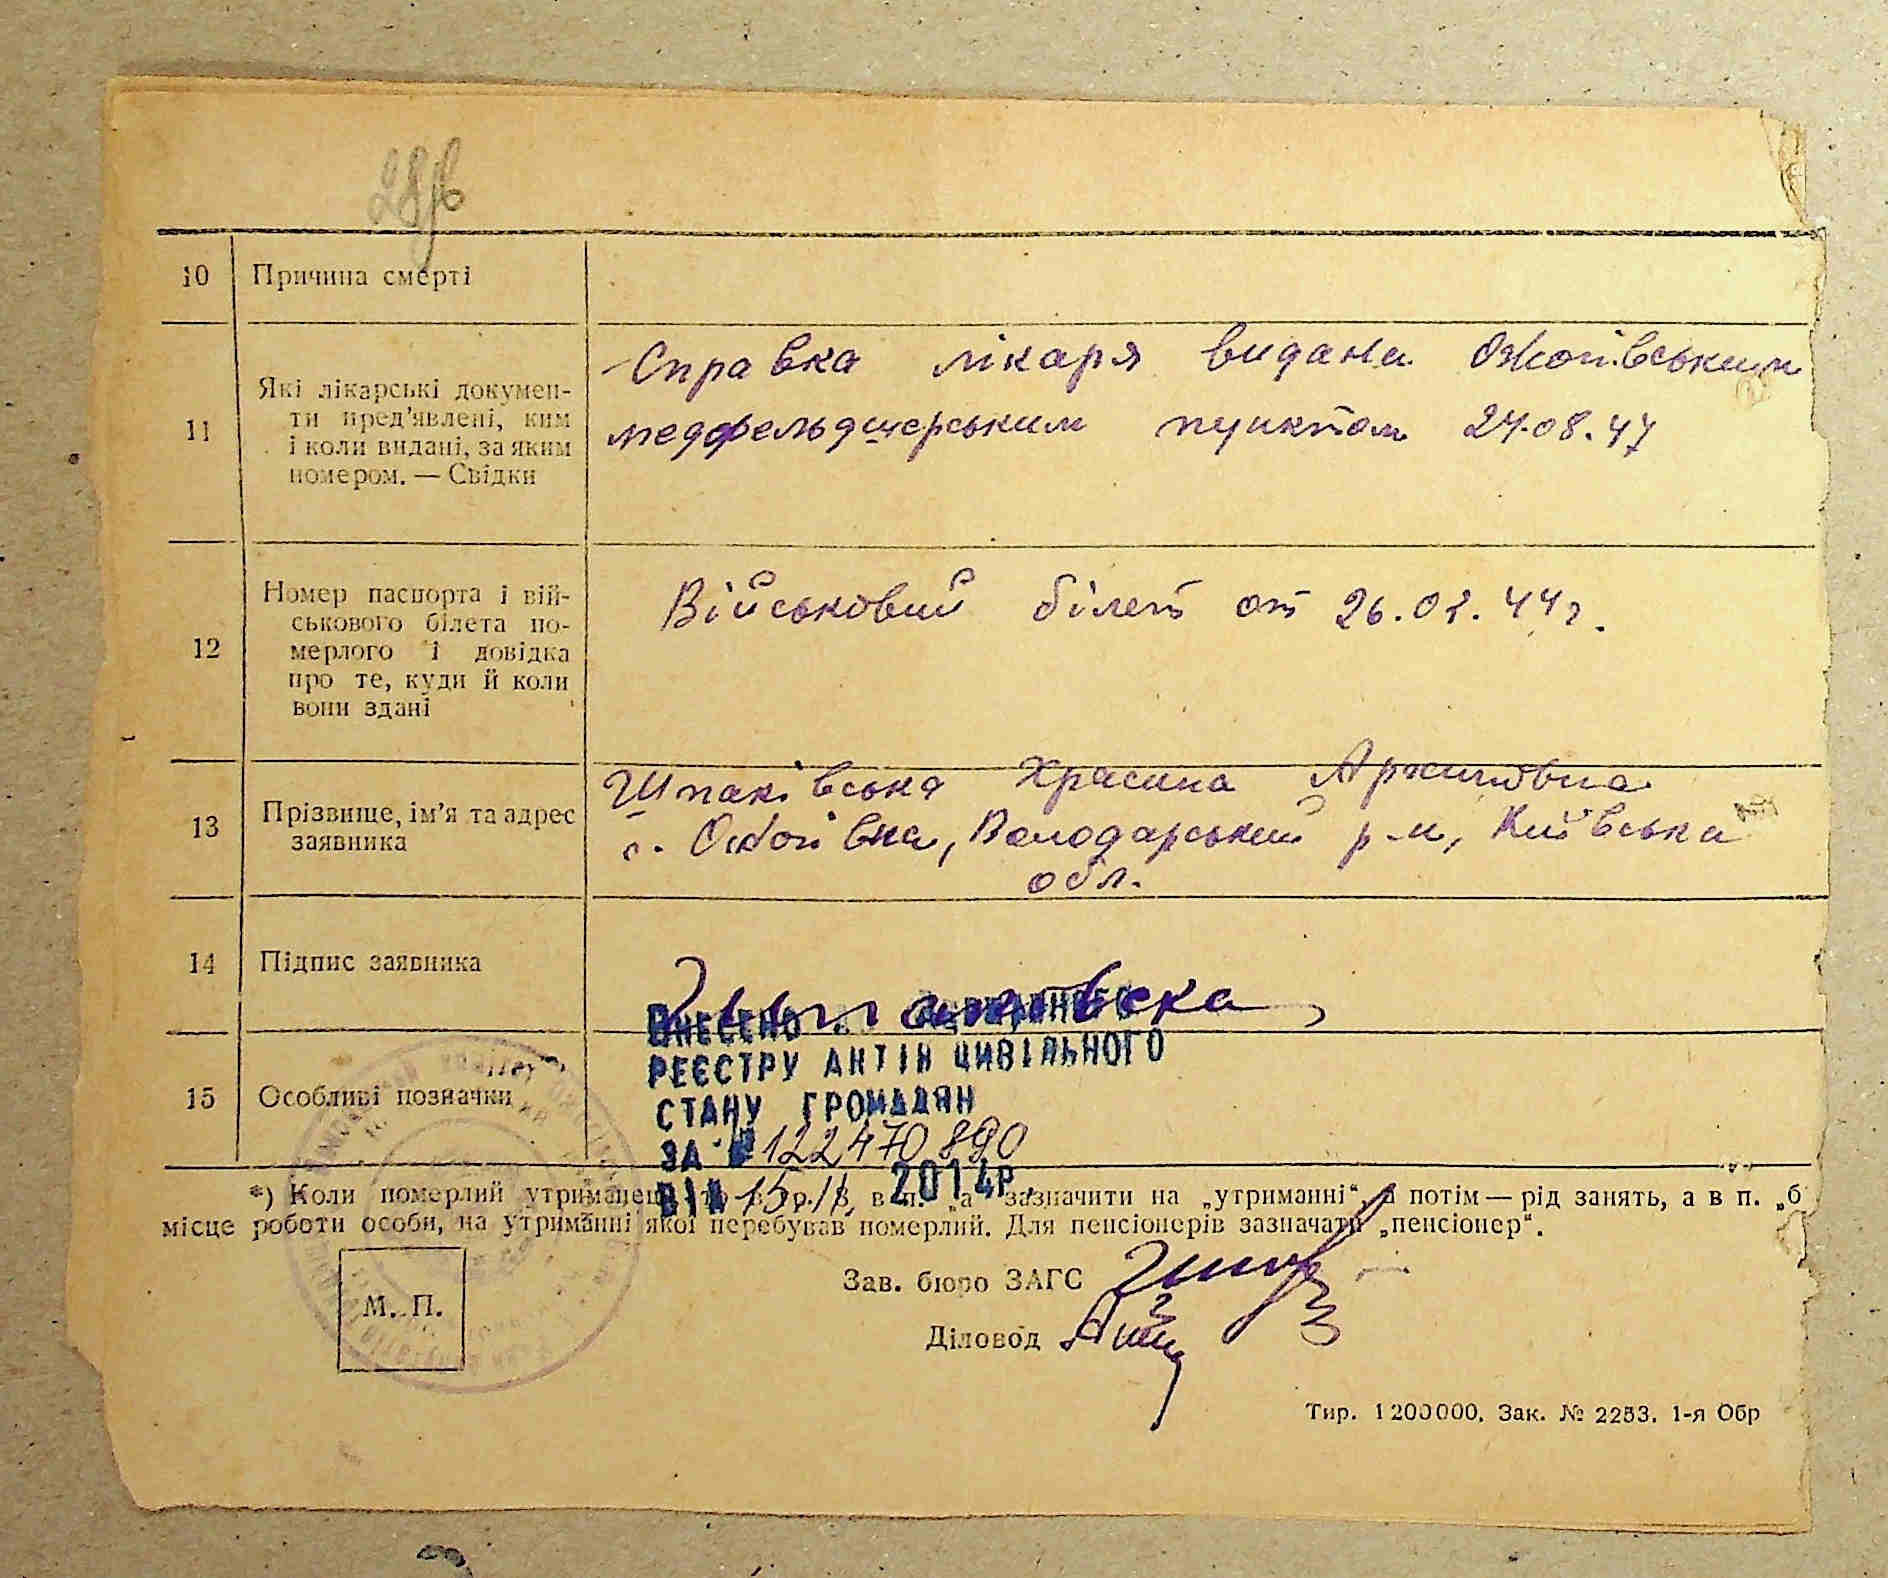 28
10 Причина смерті
11 Які лікарські докумен-
ти пред'явлені, ким
і коли видані, за яким
номером. — Свідки
Справка лікаря видана Ожогівським
медфельдшерським пунктом 24.08.47
12 Номер паспорта і вій-
ськового білета по-
мерлого і довідка
про те, куди й коли
вони здані
Військовий білет от 26.02.44 г.
13 Прізвище, ім'я та адрес
заявника
Шпаківська Архиповна
с. Ожогівка, Володарський р-н, Київська
обл.
14 Підпис заявника
15 Особливі позначки
ВНЕСЕНО ДО ДЕРЖАВНОГО
РЕЄСТРУ АКТІВ ЦИВІЛЬНОГО
СТАНУ ГРОМАДЯН
ЗА № 122470890
ВІД 2014Р.
*) Коли померлий утриманець, то в р. 8, в п. „а“ зазначити на „утриманні“, а потім — рід занять, а в п. „б
місце роботи особи, на утриманні якої перебував померлий. Для пенсіонерів зазначати „пенсіонер“.
М. П.
Зав. бюро ЗАГС
Діловод
Тир. 1200000. Зак. № 2253. 1-я Обр